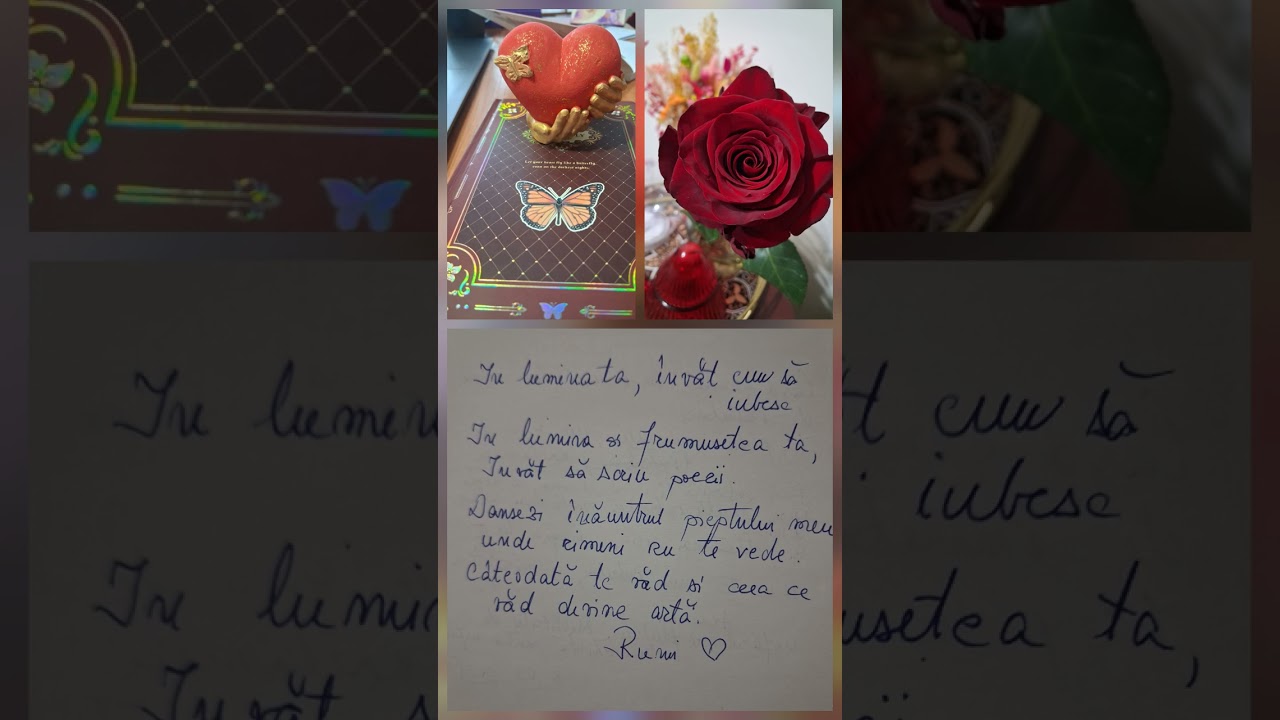 Let your heart fly like a butterfly,
even on the darkest nights.
In lumina ta, învăt cum să
iubesc
In lumina si frumusetea ta,
Învăt să scriu poezii.
Dansezi înăuntrul pieptului meu
unde nimeni nu te vede.
Câteodată te văd si ceea ce
văd devine artă.
Rumi